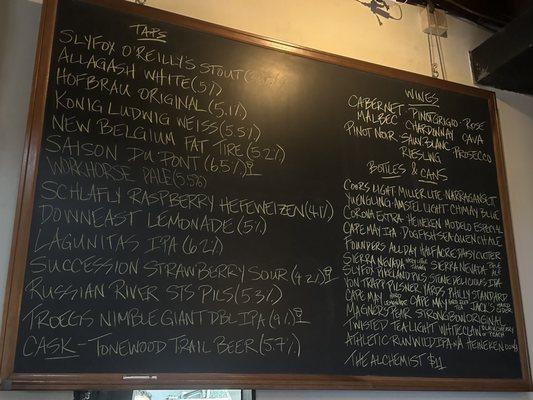 TAPS
SLYFOX O'REILLY'S STOUT
ALLAGASH WHITE (5%)
HOFBRAU ORIGINAL (5.1%)
KONIG LUDWIG WEISS (5.5%)
NEW BELGIUM FAT TIRE (5.2%)
SAISON DU PONT (6.5%)
WORKHORSE PALE (5.5%)
SCHLAFLY RASPBERRY HEFEWEIZEN (4.1%)
DOWNEAST LEMONADE (5%)
LAGUNITAS IPA (6.2%)
SUCCESSION STRAWBERRY SOUR (4.2%)
RUSSIAN RIVER STS PILS (5.3%)
TROEGS NIMBLE GIANT DBL IPA (9%)
CASK - TONEWOOD TRAIL BEER (5.7%)
WINES
CABERNET · PINOT GRIGIO · ROSE
MALBEC · CHARDONNAY · CAVA
PINOT NOIR · SAUV BLANC · PROSECCO
RIESLING
BOTTLES & CANS
COORS LIGHT · MILLER LITE · NARRAGANSETT
YUENGLING · AMSTEL LIGHT · CHIMAY BLUE
CORONA EXTRA · HEINEKEN · MODELO ESPECIAL
CAPE MAY IPA · DOGFISH SEA QUENCH ALE
FOUNDERS ALL DAY · HALF ACRE DAISY CUTTER
SIERRA NEVADA · SIERRA NEVADA PALE ALE
SLYFOX HELLES · STONE DELICIOUS IPA
VON TRAPP PILSNER · YARDS PHILLY STANDARD
CAPE MAY · CAPE MAY · JACK'S HARD CIDER
MAGNERS PEAR · STRONGBOW ORIGINAL
TWISTED TEA LIGHT · WHITE CLAW BLACK CHERRY
ATHLETIC RUN WILD IPA NA · HEINEKEN
THE ALCHEMIST $11